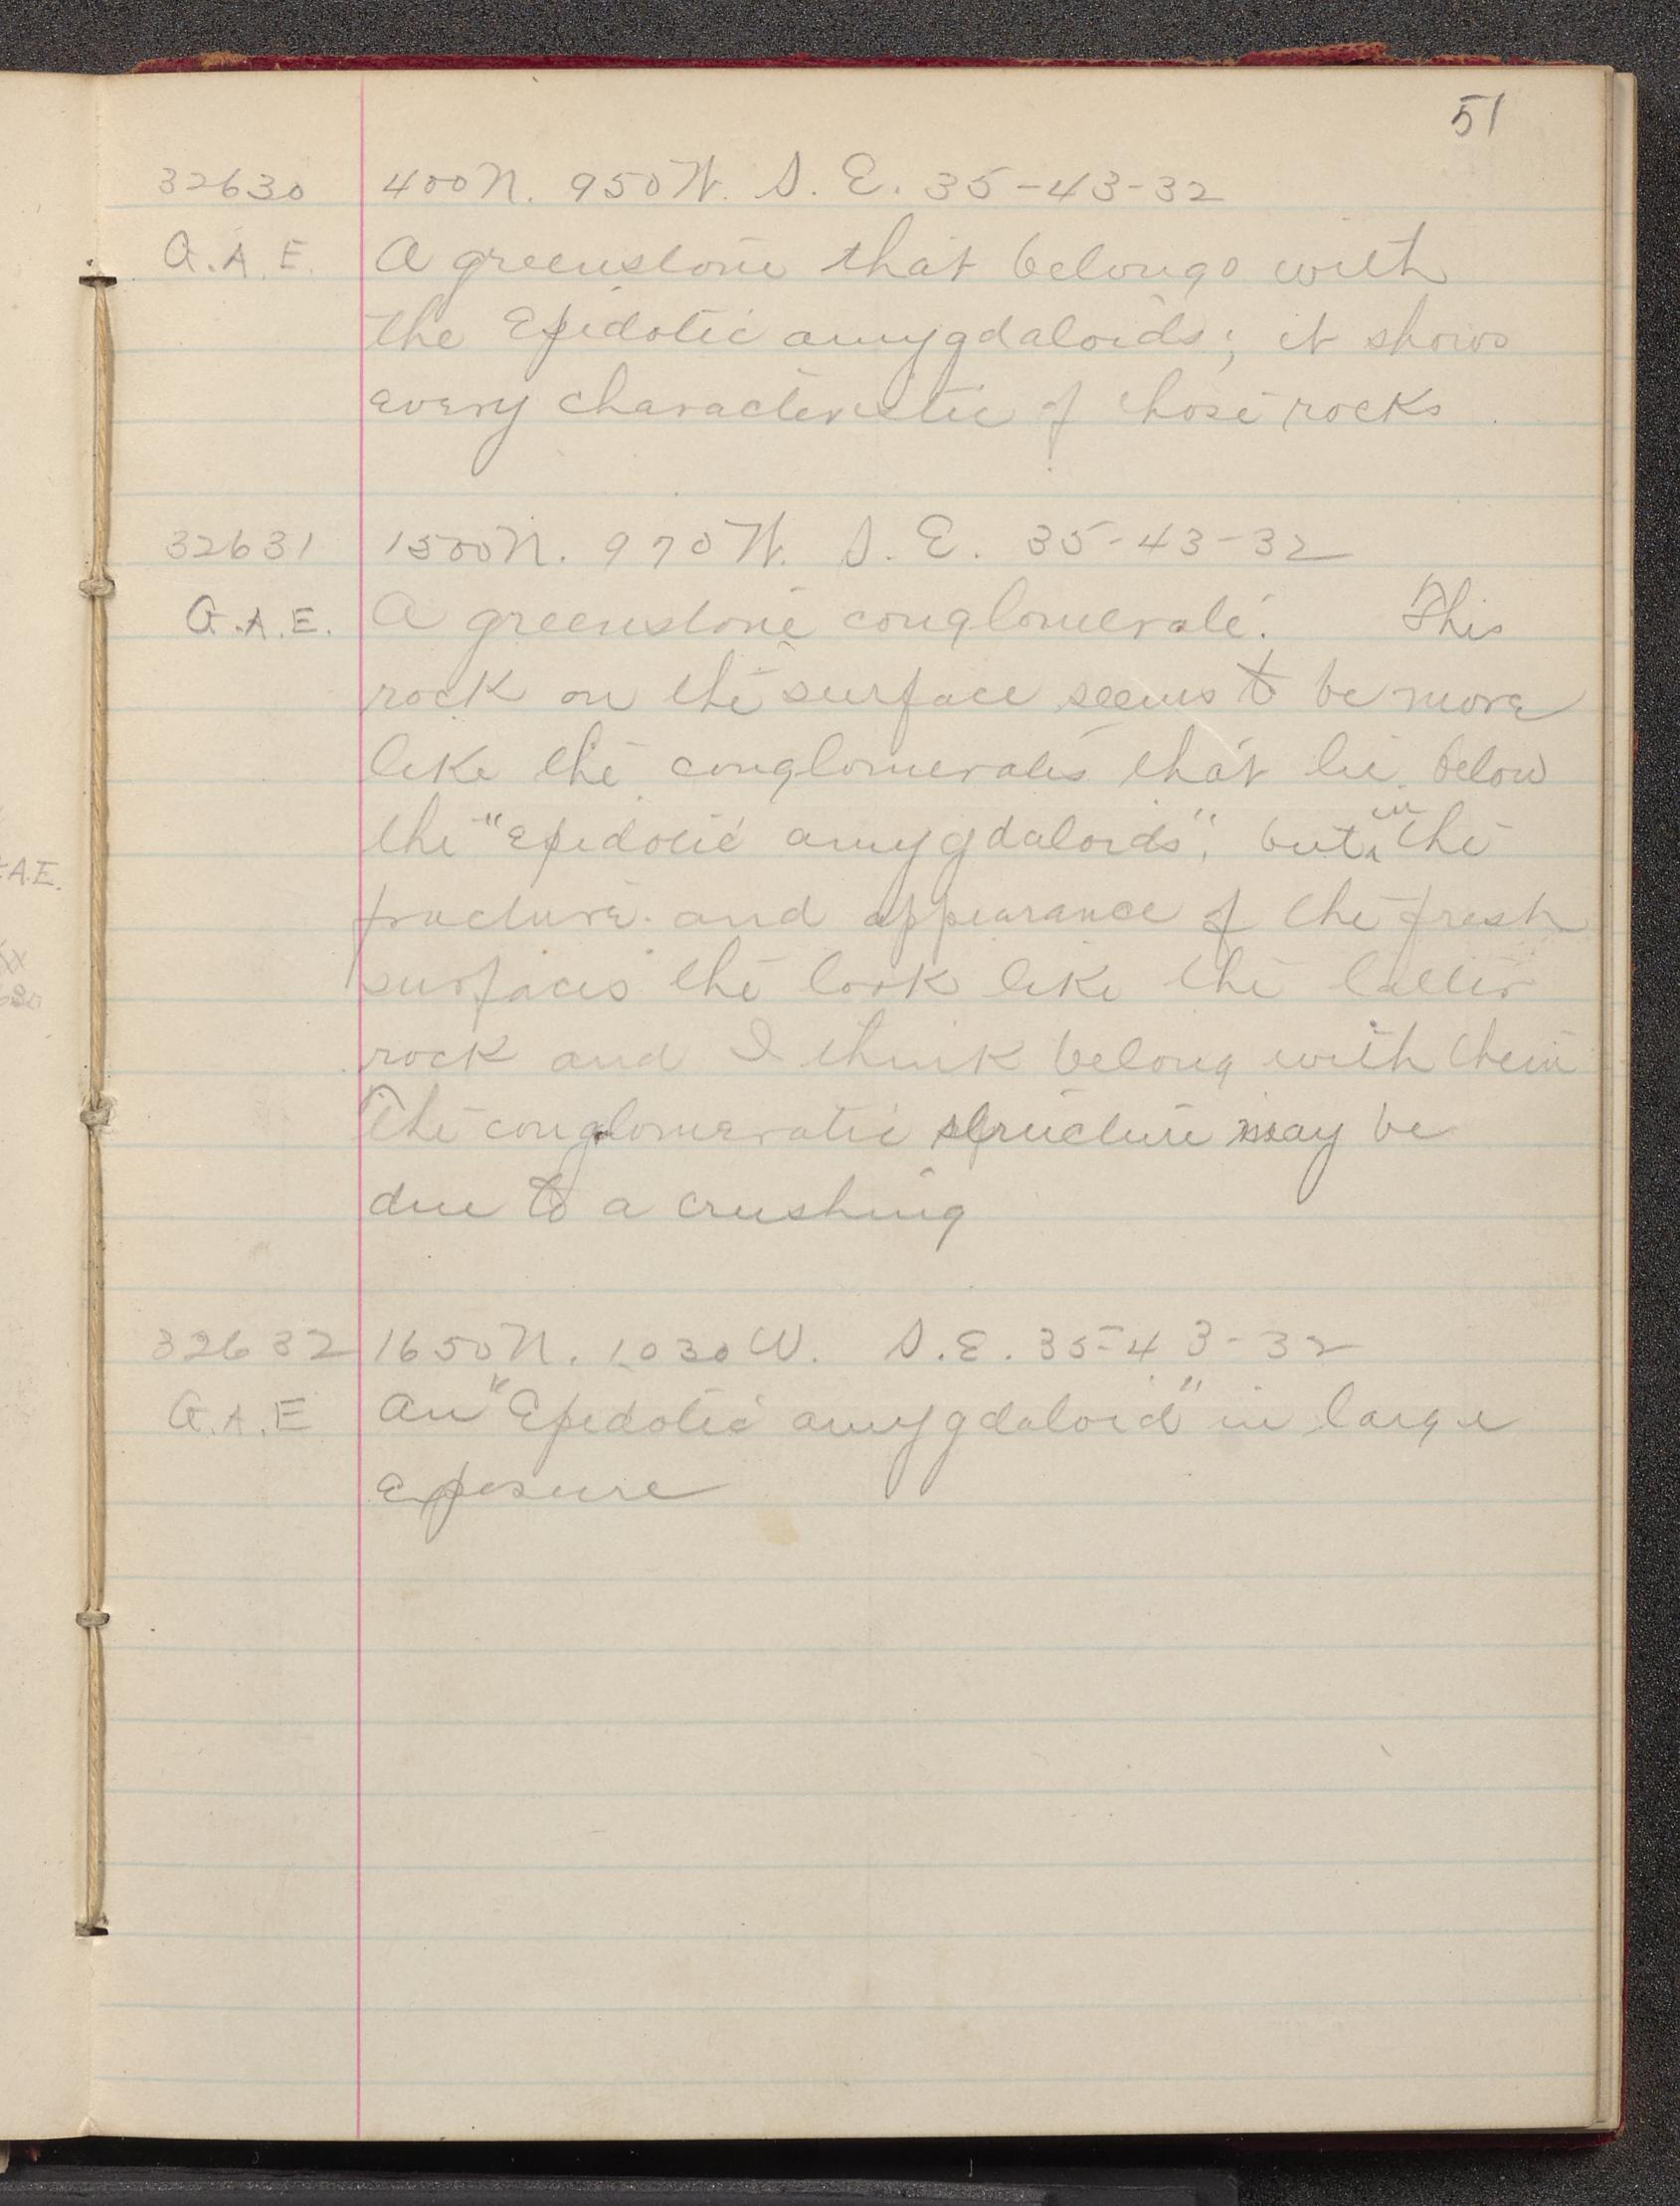 51
32630 400 N. 950 W. S. E. 35-43-32
G.A.E. A greenstone that belongs with
the Epidotic amygdaloids; it shows
every characteristic of those rocks.
32631 1500 N. 970 W. S. E. 35-43-32
G.A.E. A greenstone conglomerate. This
rock on the surface seems to be more
like the conglomerates that lie below
the "epidotic amygdaloids", but in the
fracture and appearance of the fresh
surfaces the look like the latter
rock and I think belong with them
The conglomeratic structure may be
due to a crushing
32632 1650 N. 1030 W. S.E. 35-43-32
G.A.E An "Epidotic amygdaloid" in large
exposure
A.E.